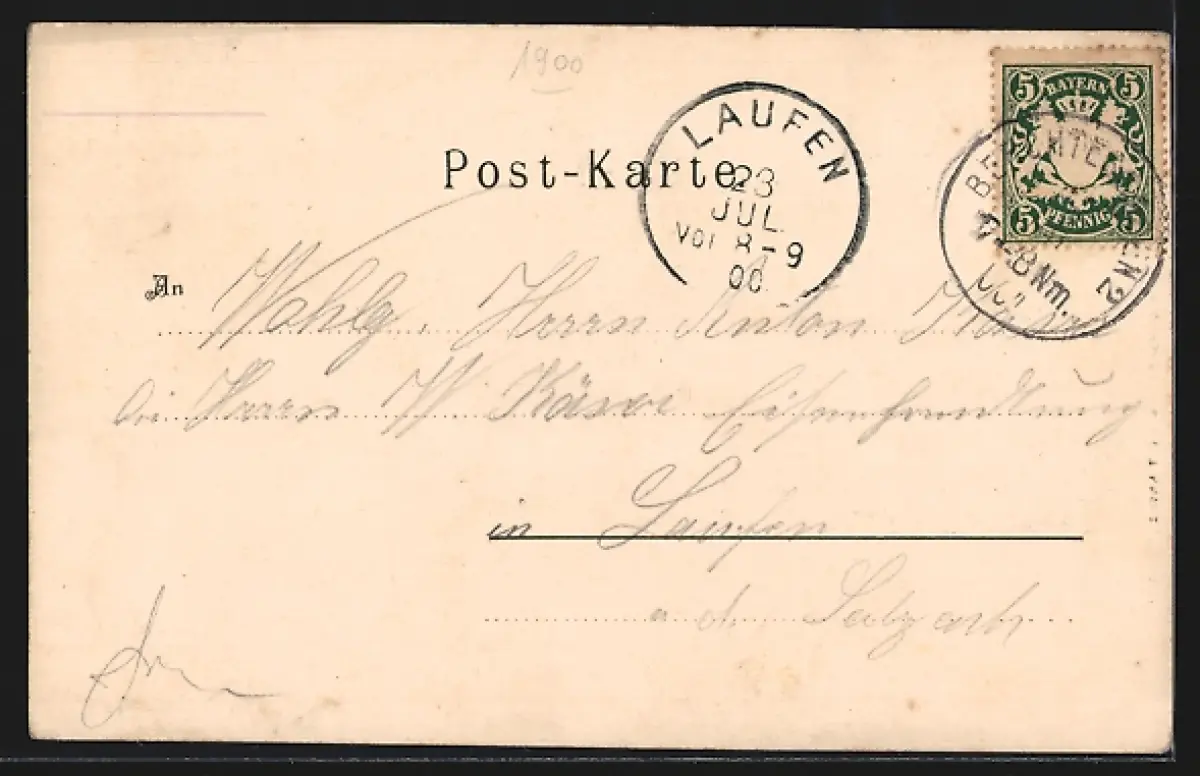 1900
Post-Karte
LAUFEN
23
JUL.
Vor 8-9
00
5 BAYERN 5
5 PFENNIG 5
7-8 Nm.
An
Wohlg. Herrn Anton
bei Herrn W. Käser Eisenhandlung
in Laufen
a. d. Salzach